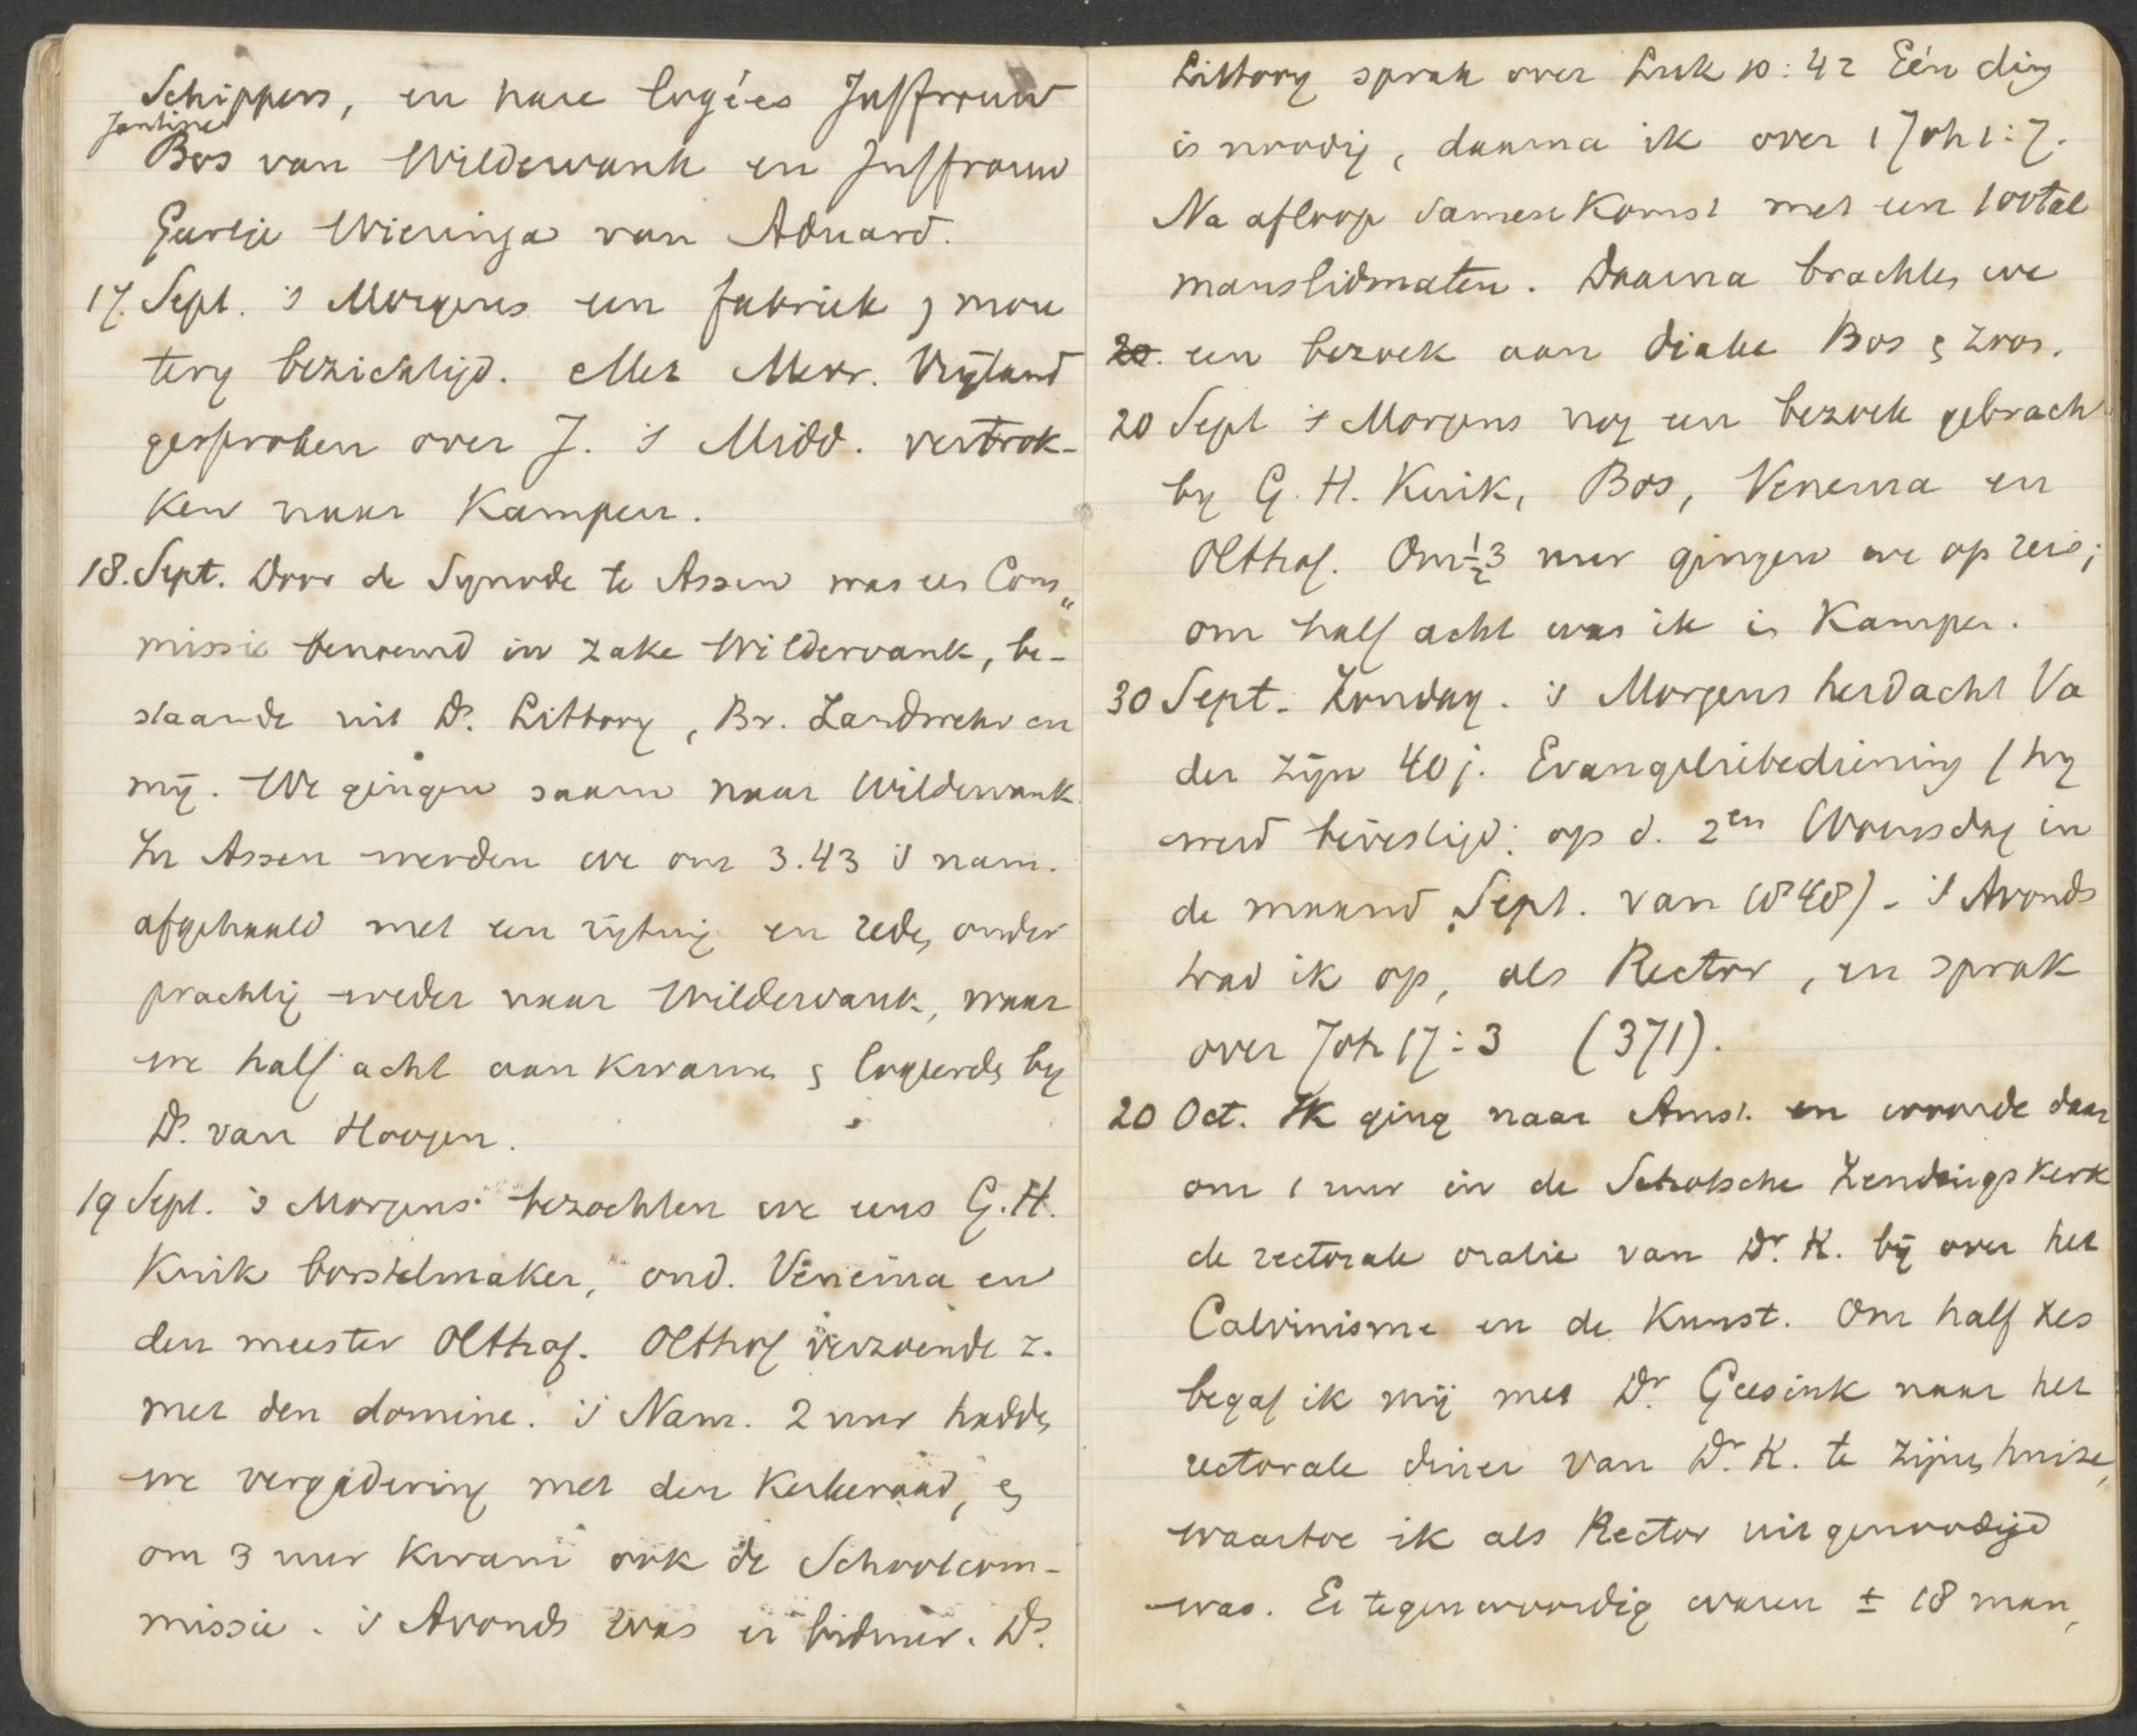 Schippers, en hare logées Juffrouw
Jantine
Bos van Wildervank en Juffrouw
Geertje Wieringa van Aduard.
17. Sept. 's Morgens een fabriek & mou
tery bezichtigd. Met Mevr. Vrijland
gesproken over J. 's Midd. vertrok-
ken naar Kampen.
18. Sept. Door de Synode te Assen was een Com„
missie benoemd in zake Wildervank, be-
staande uit Ds. Littooy, Br. Landwehr en
mij. We gingen saam naar Wildervank
In Assen werden we om 3.43 's nam.
afgehaald met een rijtuig en reden onder
prachtig weder naar Wildervank, waar
we half acht aankwamen & logeerden by
Ds. van Hoogen.
19 Sept. 's Morgens bezochten we eens G.H.
Kuik borstelmaker, oud. Venema en
den meester Olthof. Olthof verzoende z.
met den domine. 's Nam. 2 uur hadden
we vergadering met den Kerkeraad, &
om 3 uur kwam ook de Schoolcom-
missie. 's Avonds was er biduur. Ds.
Littooy sprak over Luk 10:42 Eén ding
is noodig, daarna ik over 1 Joh 1:7.
Na afloop samenkomst met een 100tal
manslidmaten. Daarna brachten we
20. een bezoek aan diake Bos & zoon.
20 Sept 's Morgens nog een bezoek gebracht
by G.H. Kuik, Bos, Venema en
Olthof. Om ½3 uur gingen we op reis;
om half acht was ik in Kampen.
30 Sept. Zondag. 's Morgens herdacht Va
der zijn 40 j. Evangeliebediening (hy
werd bevestigd: op d. 2en Woensdag in
de maand Sept. van 1848) - 's Avonds
trad ik op, als Rector, en sprak
over Joh 17:3 (371).
20 Oct. Ik ging naar Amst. en woonde daar
om 1 uur in de Schotsche Zendingskerk
de rectorale oratie van Dr. K. bij over het
Calvinisme en de Kunst. Om half zes
begaf ik mij met Dr. Geesink naar het
rectorale diner van Dr. K. te zijnen huize,
waartoe ik als Rector uitgenoodigd
was. Er tegenwoordig waren ± 18 man,